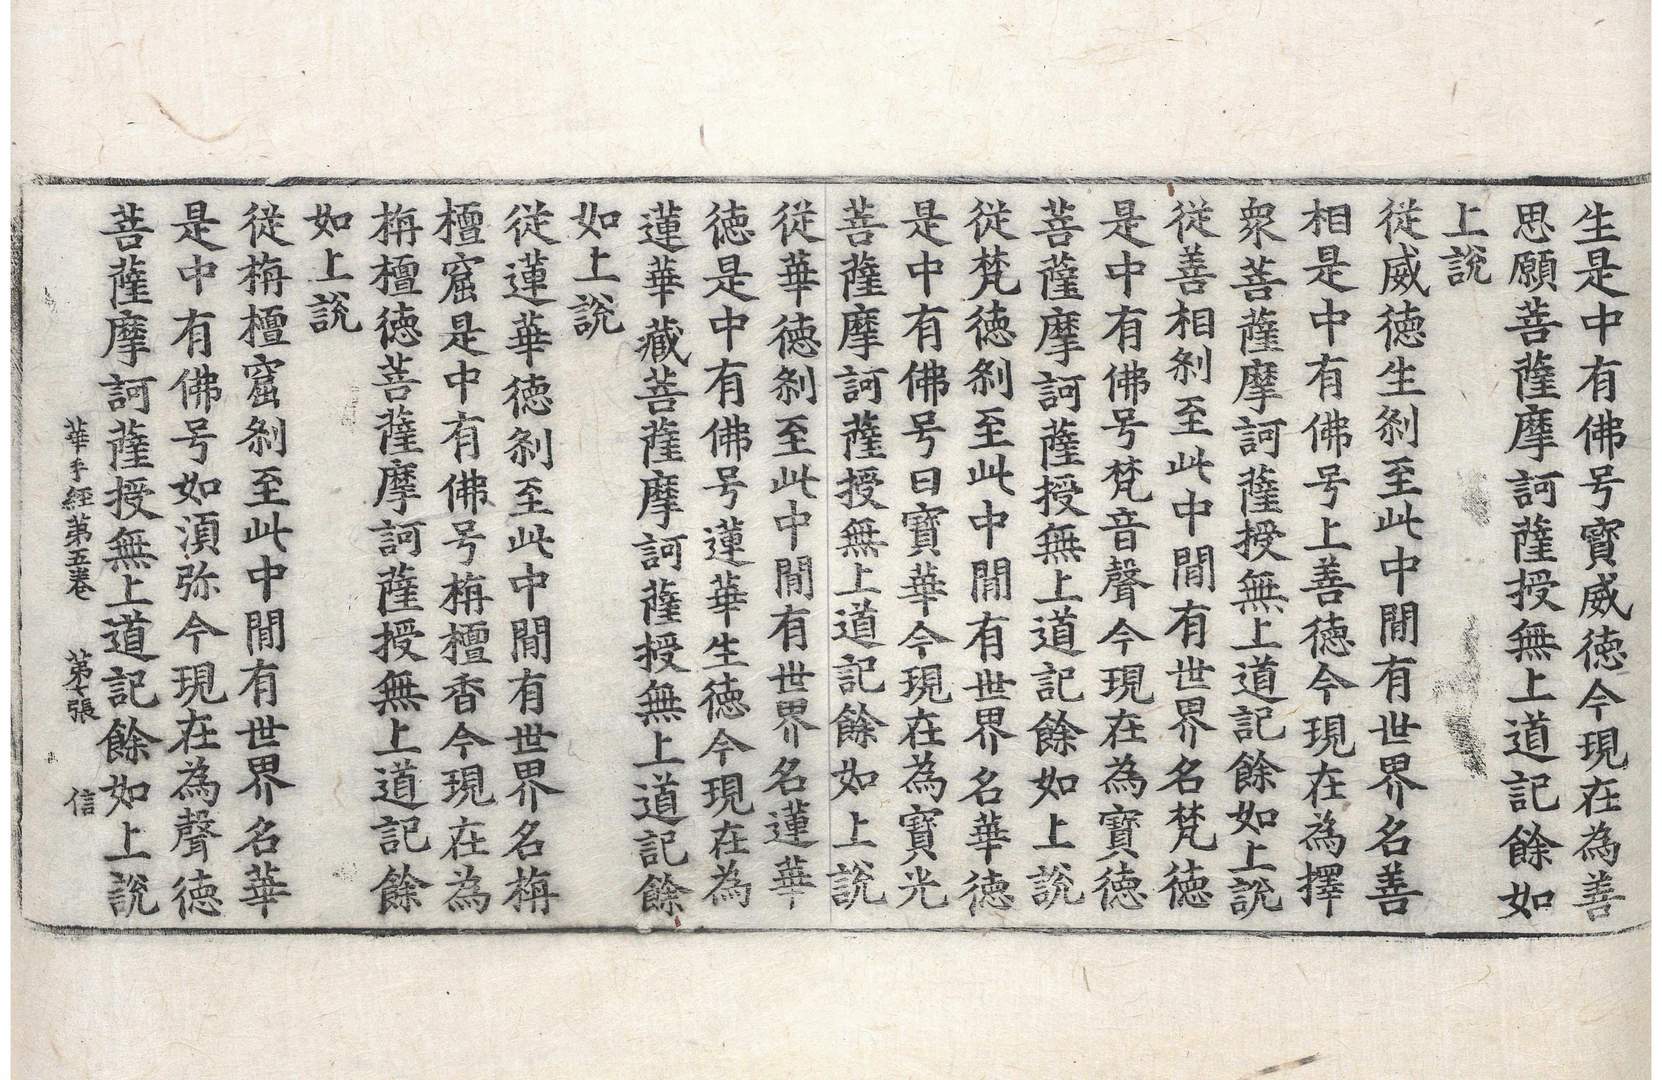 生是中有佛号寳威徳今現在為善
思願菩薩摩訶薩授無上道記餘如
上説
従威徳生刹至此中間有世界名善
相是中有佛号上善徳今現在為擇
衆菩薩摩訶薩授無上道記餘如上説
従善相刹至此中間有世界名梵徳
是中有佛号梵音聲今現在為寳徳
菩薩摩訶薩授無上道記餘如上説
従梵徳刹至此中間有世界名華徳
是中有佛号曰寳華今現在為寳光
菩薩摩訶薩授無上道記餘如上説
従華徳刹至此中間有世界名蓮華
徳是中有佛号蓮華生徳今現在為
蓮華藏菩薩摩訶薩授無上道記餘
如上説
従蓮華徳刹至此中間有世界名栴
檀窟是中有佛号栴檀香今現在為
栴檀徳菩薩摩訶薩授無上道記餘
如上説
従栴檀窟刹至此中間有世界名華
是中有佛号如湏弥今現在為聲徳
菩薩摩訶薩授無上道記餘如上説
華手經第五卷 第七張 信